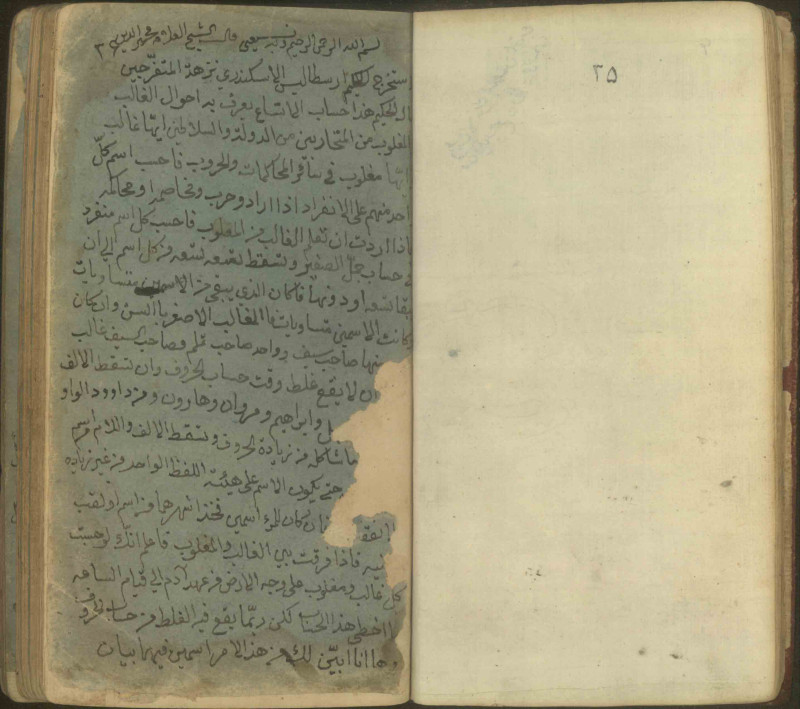 بسم الله الرحمن الرحيم وبه نستعين قال الشيخ العلامه محيي الدين
استخرج الحكيم ارسطاليس الاسكندري نزهة المتفرجين
الحكيم هذا حساب الاتساع يعرف به احوال الغالب
المغلوب من المتحاربين من الدولة والسلاطين ايها غالب
ايها مغلوب في تنافر المحاكمات والحروب فاحسب اسم كل
احد منهم على الانفراد اذا اراد وحرب ومخاصمه او محاكمه
فاذا اردت ان تعلم الغالب من المغلوب فاحسب كل اسم منفرد
في حساب جمل الصغير وتسقط تسعه تسعه من كل اسم الى ان
يبقا تسعه او دونها فما كان الذي يبقى من الاسمين متساويات
وكانت الاسمين متساويات فالغالب الاصغر بالسن وان كان
منها صاحب سيف وواحد صاحب قلم فصاحب السيف غالب
ان لا يقع غلط وقت حساب الحروف وان تسقط الالف
وابراهيم ومروان وهارون ومن داوود الواو
ما شاكله من زيادة الحروف وتسقط الالف واللام من اسم
حتى يكون الاسم على هيئة اللفظ الواحد من غير زياده
اتفق ان كان للمرء اسمين فخذ اشهرهما من اسم او لقب
فاذا فرقت بين الغالب والمغلوب فاعلم انك لو حسبت
كل غالب ومغلوب على وجه الارض من عهد ادم الى قيام الساعه
ما اخطى هذا الحساب لكن ربما يقع فيه الغلط من حساب الحروف
وها انا ابين لك من هذا الامر اسمين فيهما بيان
٢٥